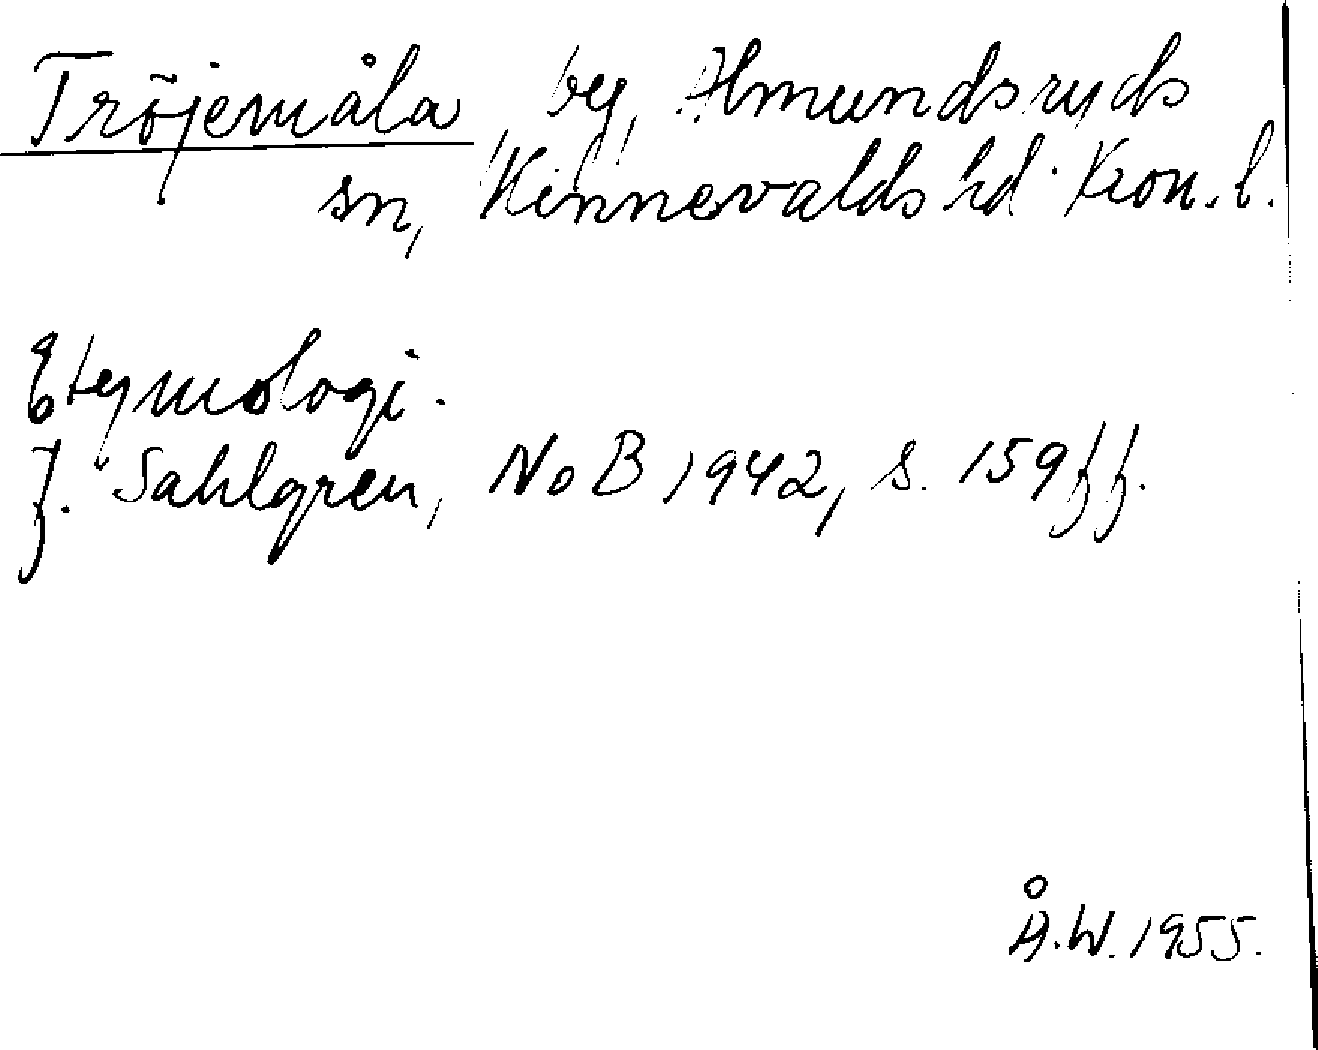 Tröjemåla, by, Almundsryds
sn, Kinnevalds hd Kron. l.
Etymologi.
J. Sahlgren, NoB 1942, s. 159 ff.
Å.W. 1955.